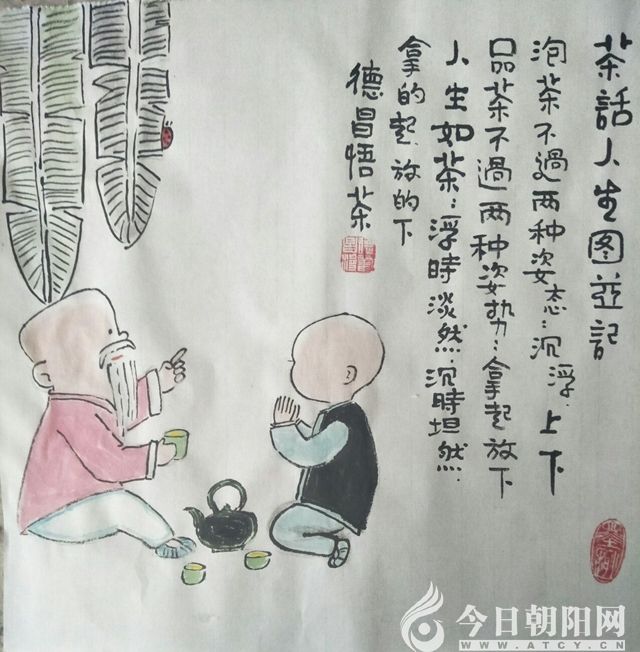 茶話人生图並記
泡茶不過两种姿态:沉浮.上下
品茶不過两种姿势:拿起放下
人生如茶:浮時淡然沉時坦然.
拿的起.放的下
德昌悟茶
今日朝阳网
WWW.ATCY.CN